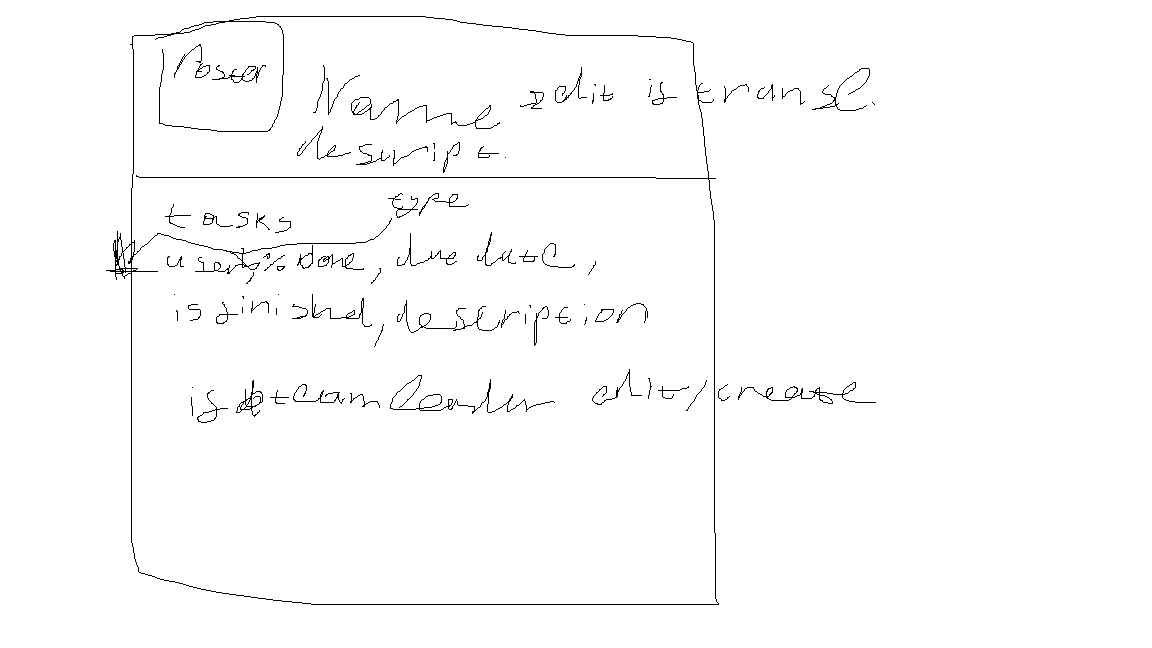 Poster
Name edit if transl.
descript.
type
tasks
users, % done, due date,
is finished, description
if teamleader edit/create